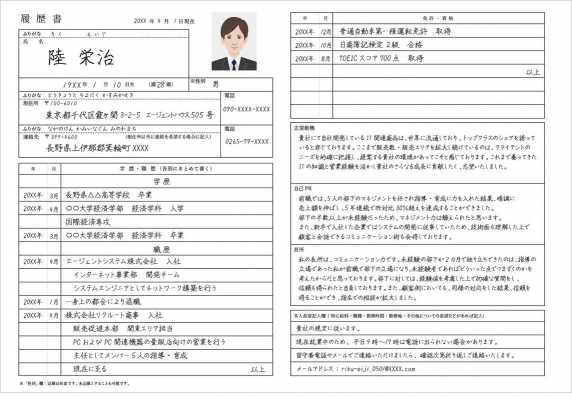 履歴書
20XX年 9月 1日現在
ふりがな りく えいじ
氏名
陸 栄治
19XX年 1月 10日生 (満28歳)
※性別 男
ふりがな とうきょうと ちよだく かすみがせき
現住所 〒100-6010
東京都千代区霞ヶ関3-2-5 エージェントハウス505号
電話
090-XXXX-XXXX
ふりがな ながのけん かみいなぐん みのわまち
連絡先 〒399-4600 (現住所以外に連絡を希望する場合に記入)
長野県上伊那郡箕輪町XXXX
電話
0265-79-XXXX
年 月 学歴・職歴 (各別にまとめて書く)
学歴
20XX年 3月 長野県△△高等学校 卒業
20XX年 4月 〇〇大学経済学部 経済学科 入学
国際経済専攻
20XX年 3月 〇〇大学経済学部 経済学科 卒業
職歴
20XX年 4月 エージェントシステム株式会社 入社
インターネット事業部 開発チーム
システムエンジニアとしてネットワーク構築を行う
20XX年 1月 一身上の都合により退職
20XX年 4月 株式会社リクルート商事 入社
販売促進本部 関東エリア担当
PCおよびPC関連機器の量販店向けの営業を行う
主任としてメンバー5人の指導・育成
現在に至る 以上
年 月 免許・資格
20XX年 12月 普通自動車第一種運転免許 取得
20XX年 10月 日商簿記検定2級 合格
20XX年 8月 TOEICスコア700点 取得
以上
志望動機
貴社にて自社開発しているIT関連商品は、世界に流通しており、トップクラスのシェアを誇って
いると存じております。ここまで販売数・販売エリアを拡大し続けているのは、クライアントの
ニーズを的確に把握し、提案する貴社の環境があってこそと感じております。これまで養ってきた
ITの知識と営業経験を活かく貴社のさらなる成長に貢献したく、志望いたしました。
自己PR
前職では、5人の部下のマネジメントを任され指導・育成に力を入れた結果、順調に
売上額を伸ばし、5年連続で昨対比30%超えを達成することができました。
部下の半数以上が未経験だったため、マネジメント力は鍛えられたと思います。
また、新卒で入社した企業ではシステムの開発に従事していたため、技術面も理解した上で
顧客と会話できるコミュニケーション術も会得しております。
長所
私の長所は、コミュニケーション力です。未経験の部下が2カ月で独り立ちできたのは、指導の
立場であった私が前職で部下の立場になり、未経験者であればどういった点でつまずくのかを
考えたからだと思っております。部下に対しては、経験値を考慮した上で的確な質問をし、
信頼を得られたと自負しております。また、顧客側においても、同様の対応をした結果、信頼を
得ることができ、指名での相談が拡大しました。
貴社の規定に従います。
現在就業中のため、平日9時〜19時は電話に出られない場合があります。
留守番電話やメールでご連絡いただけましたら、確認次第折り返しご連絡いたします。
メールアドレス：riku-eiji_050@XXXX.com